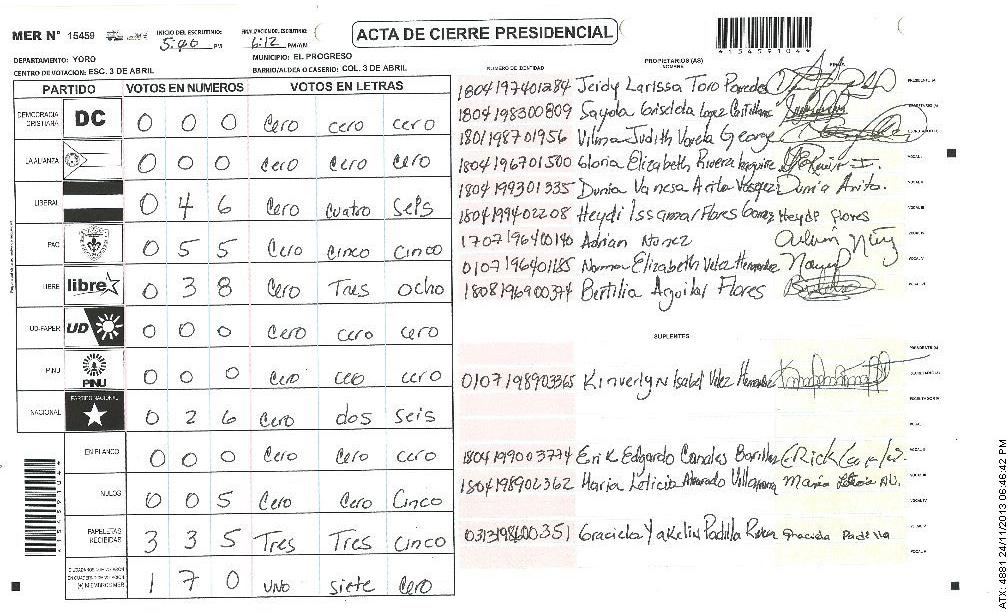 MER N° 15459
INICIO DEL ESCRUTINIO: 5:40 PM
FINALIZACION DEL ESCRUTINIO: 6:12 PM/AM
ACTA DE CIERRE PRESIDENCIAL
*154591044*
DEPARTAMENTO: YORO
MUNICIPIO: EL PROGRESO
CENTRO DE VOTACION: ESC. 3 DE ABRIL
BARRIO/ALDEA O CASERIO: COL. 3 DE ABRIL
PARTIDO VOTOS EN NUMEROS VOTOS EN LETRAS
DEMOCRACIA CRISTIANA DC 0 0 0 Cero cero cero
LA ALIANZA 0 0 0 cero cero cero
LIBERAL 0 4 6 Cero Cuatro Seis
PAC 0 5 5 Cero Cinco Cinco
LIBRE libre 0 3 8 Cero Tres ocho
UD-FAPER UD 0 0 0 Cero cero cero
PINU PINU 0 0 0 Cero cero cero
NACIONAL PARTIDO NACIONAL 0 2 6 Cero dos Seis
EN BLANCO 0 0 0 Cero Cero cero
NULOS 0 0 5 Cero Cero Cinco
PAPELETAS RECIBIDAS 3 3 5 Tres Tres Cinco
1 7 0 uno siete Cero
NUMERO DE IDENTIDAD PROPIETARIOS (AS) NOMBRE FIRMA
1804197401284 Jeidy Larissa Toro Paredes
1804198300809 Sayda Lopez
1801198701956 Vilma Judith Varela George
1804196701500 Gloria Elizabeth Rivera
1804199301335 Dunia Vanesa Arita Vasquez Dunia Arita.
1804199402208 Heydi Issamar Flores Gomez Heydi flores
1707196400140 Adrian Nunez
0107196401185 Norma Elizabeth Velez Hernandez
1808196900374 Bertilia Aguilar Flores
SUPLENTES
0107198903365 Kinverlyn Isabel Velez Hernandez
1804199003774 Erik Edgardo Canales Bonilla
1804198902362 Maria Leticia Alvarado Villanueva
0313198600351 Graciela Yakelin Padilla Rivera Graciela Padilla
*154591044*
ATX: 4881 24/11/2013 06:46:42 PM